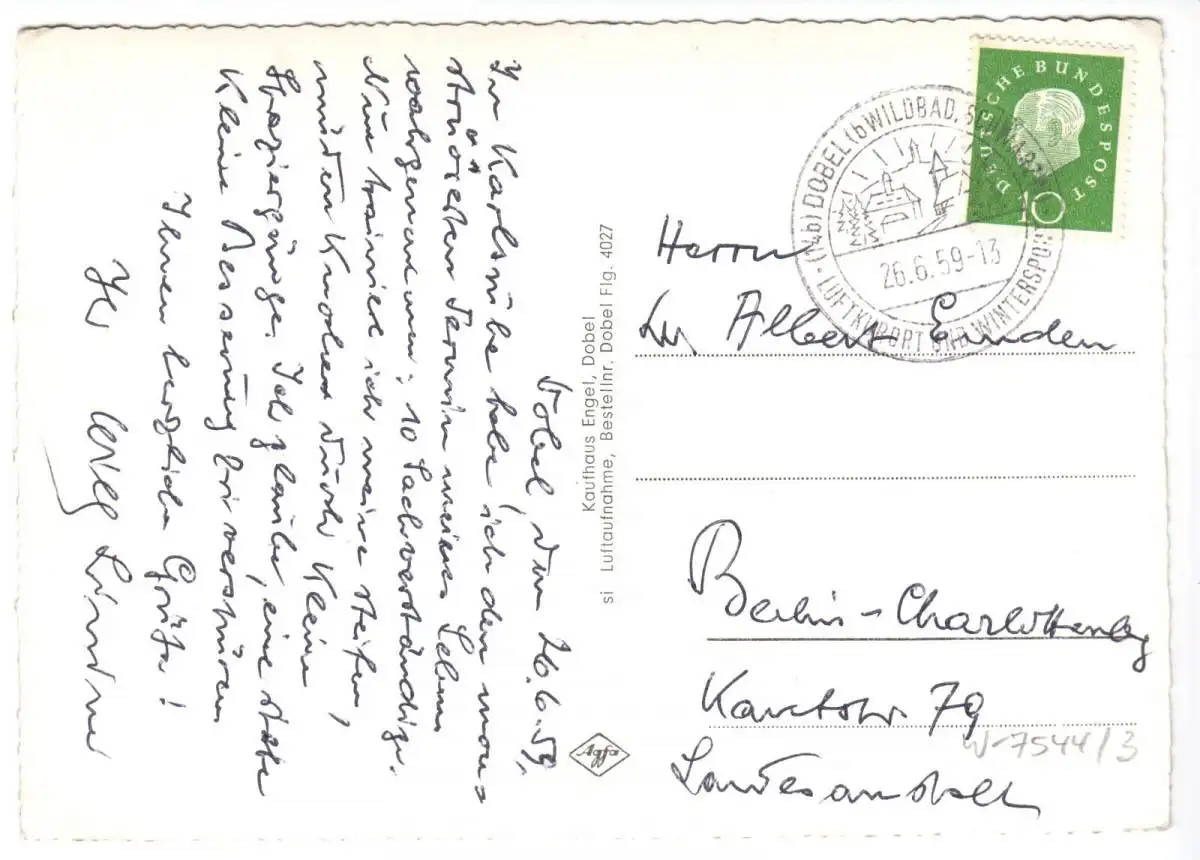 Dobel, den 26.6.59,
In Karlsruhe habe ich den mons-
trösesten Termin meines Lebens
wahrgenommen; 10 Sachverständige.
Nun trainiere ich meine steifen,
müden Knochen durch kleine
Spaziergänge. Ich glaube, eine stete
kleine Besserung zu verspüren.
Ihnen herzliche Grüße!
Ihr
Kaufhaus Engel, Dobel
si Luftaufnahme, Bestellnr. Dobel Flg. 4027
Agfa
DEUTSCHE BUNDESPOST
10
(14b) DOBEL (b WILDBAD, SCHWARZW
26.6.59-13
LUFTKURORT UND WINTERSPORT
Herrn
Dr. Albert Emden
Berlin-Charlottenbg
Kantstr. 79
Landesanstalt
W-7544/3